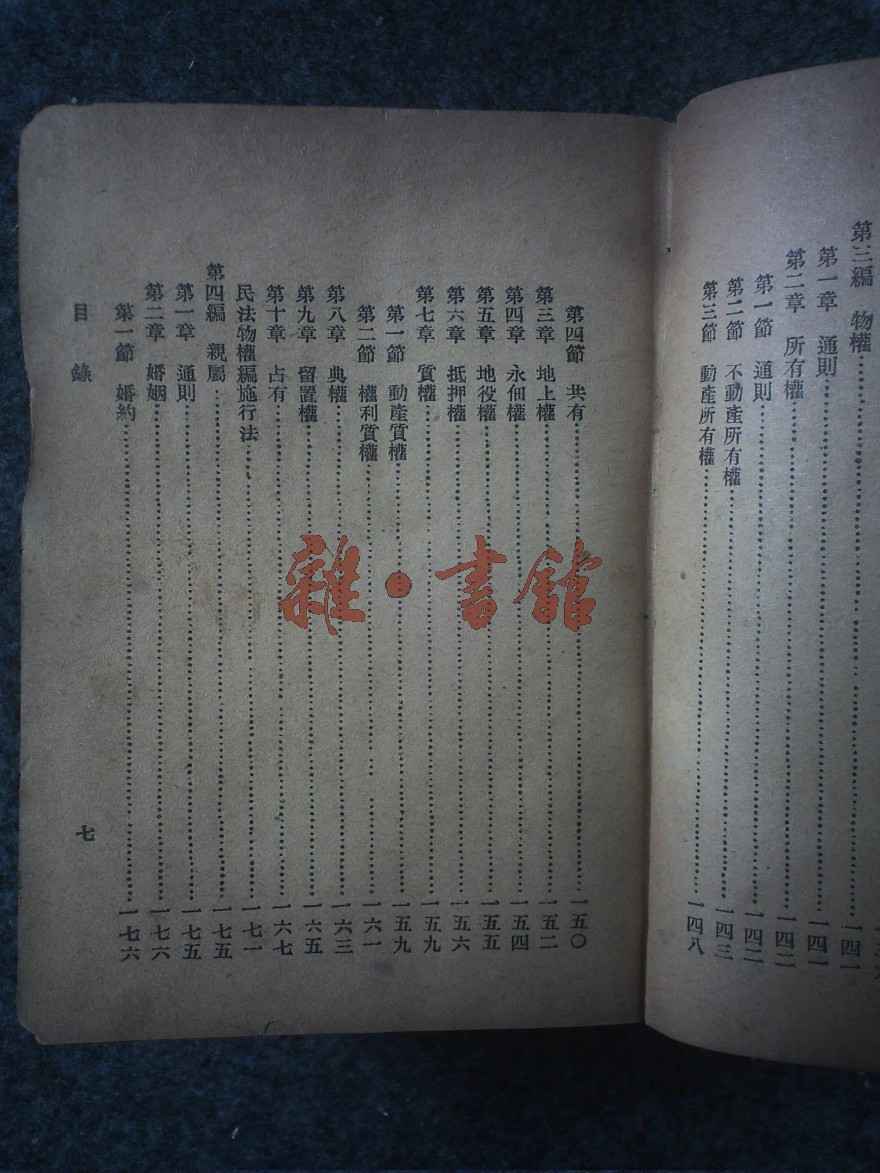 第三編　物權…………一四一
第一章　通則…………一四一
第二章　所有權…………一四二
第一節　通則…………一四二
第二節　不動產所有權…………一四三
第三節　動產所有權…………一四八
第四節　共有…………一五〇
第三章　地上權…………一五二
第四章　永佃權…………一五四
第五章　地役權…………一五五
第六章　抵押權…………一五六
第七章　質權…………一五九
第一節　動產質權…………一五九
第二節　權利質權…………一六一
第八章　典權…………一六三
第九章　留置權…………一六五
第十章　占有…………一六七
民法物權編施行法…………一七一
第四編　親屬…………一七五
第一章　通則…………一七五
第二章　婚姻…………一七六
第一節　婚約…………一七六
目錄　七
雜·書館